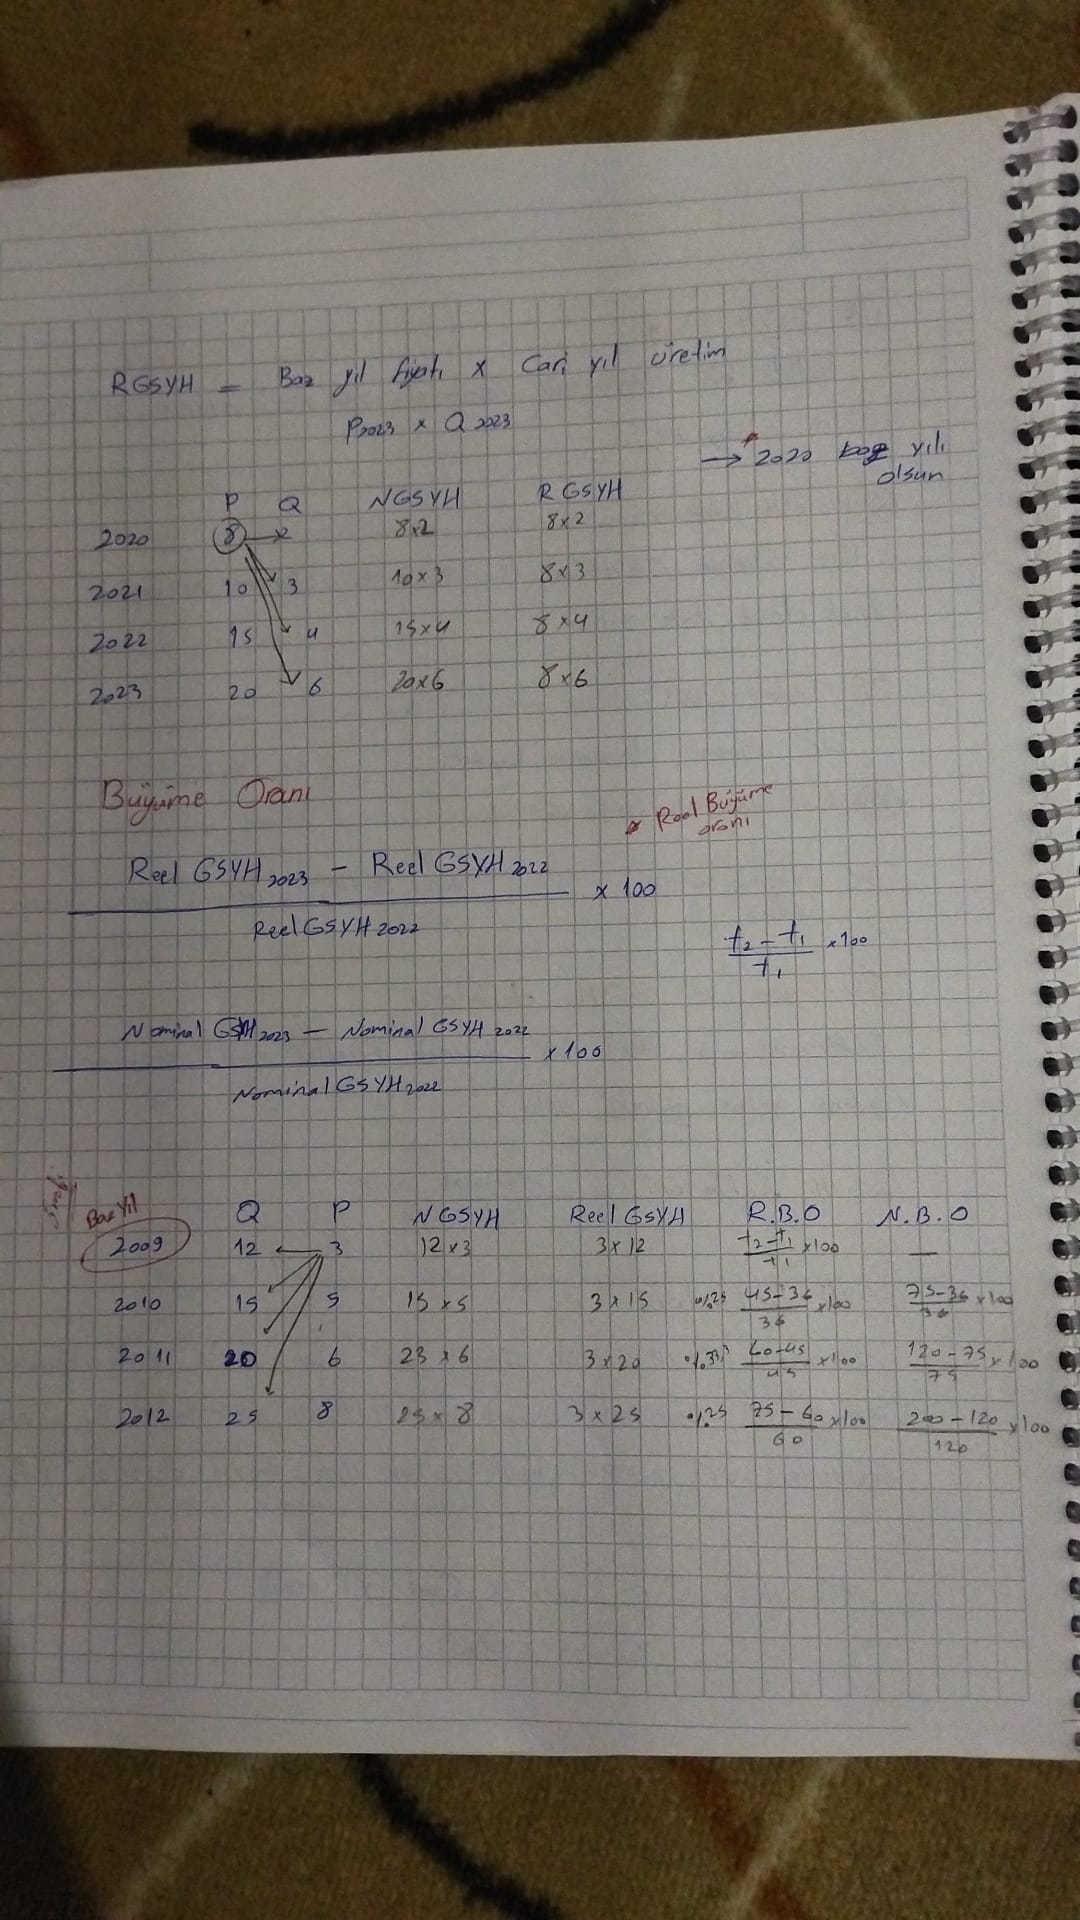 RGSYH = Baz yıl fiyatı x Cari yıl üretim
P2023 x Q2023
→ 2020 baz yılı olsun
P Q NGSYH RGSYH
2020 8 2 8x2 8x2
2021 10 3 10x3 8x3
2022 15 4 15x4 8x4
2023 20 6 20x6 8x6
Büyüme Oranı
Reel Büyüme oranı
Reel GSYH2023 - Reel GSYH2022
x 100
Reel GSYH2022
t2 - t1 x100
t1
Nominal GSYH2023 - Nominal GSYH2022
x 100
Nominal GSYH2022
Baz Yıl Q P NGSYH Reel GSYH R.B.O N.B.O
2009 12 3 12x3 3x12 t2-t1/t1 x100 —
2010 15 5 15x5 3x15 %25 45-36/36 x100 75-36/36 x100
2011 20 6 23x6 3x20 %33,3 60-45/45 x100 120-75/75 x100
2012 25 8 25x8 3x25 %25 75-60/60 x100 200-120/120 x100